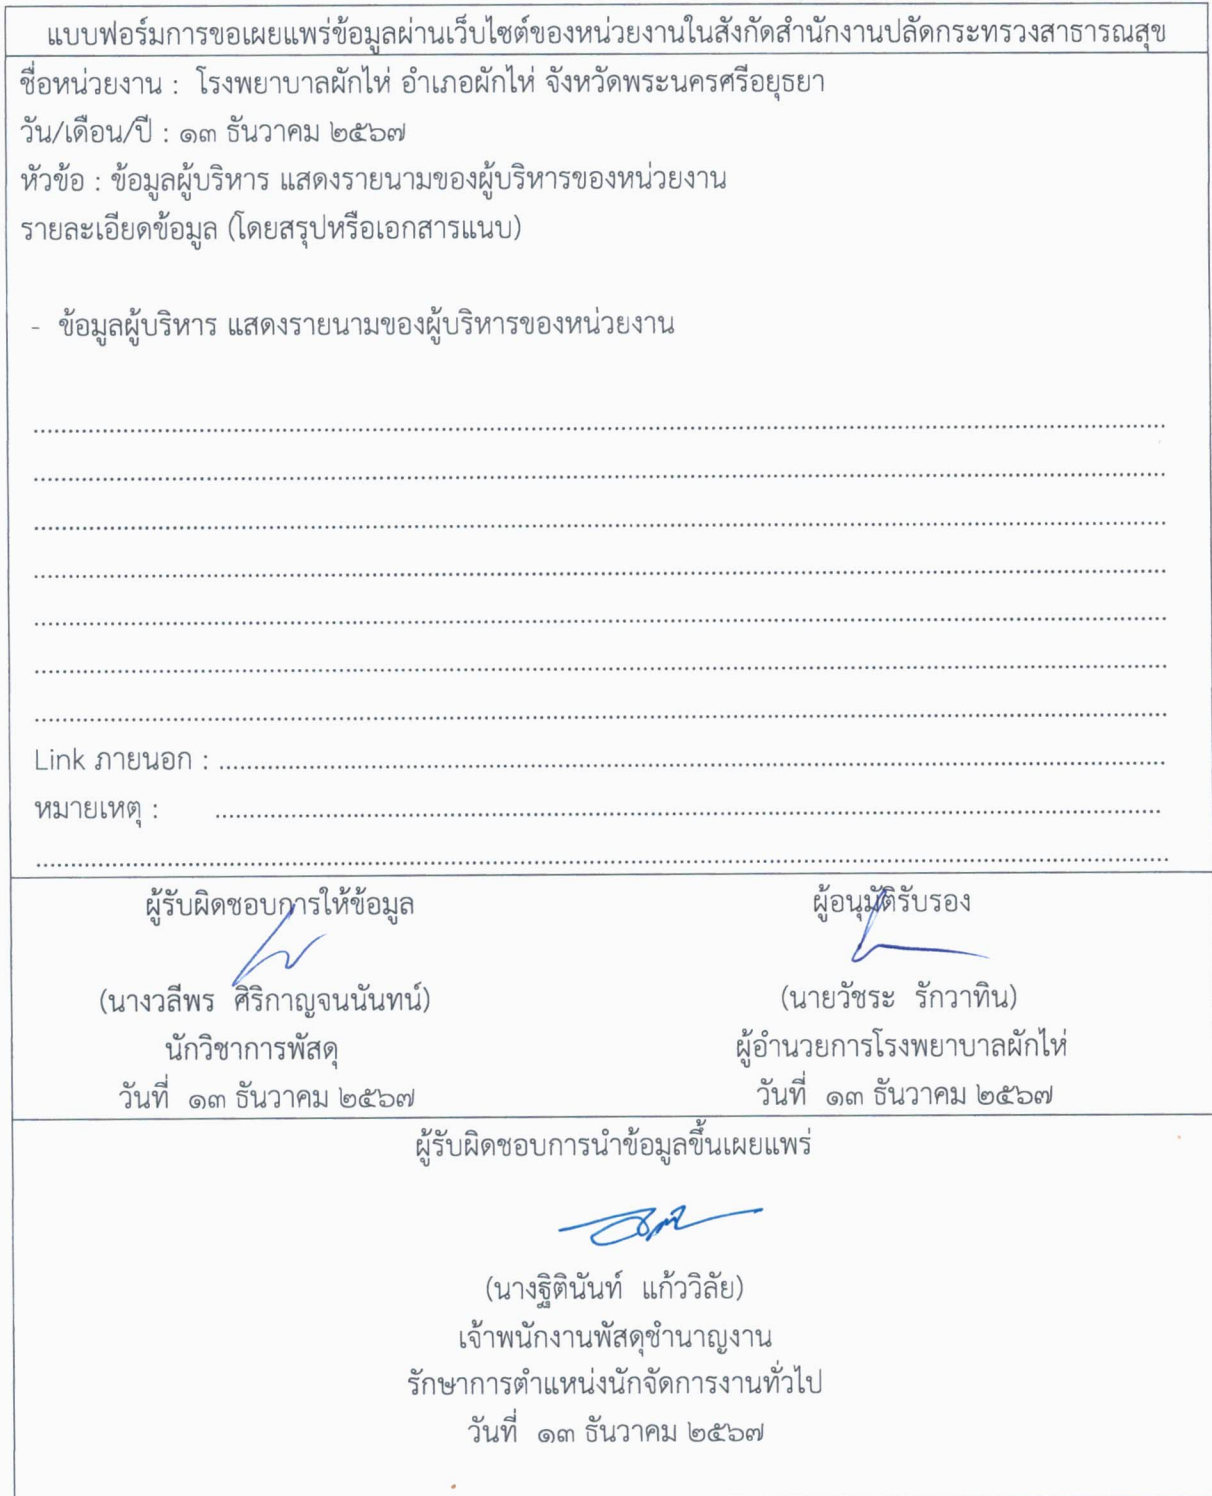 แบบฟอร์มการขอเผยแพร่ข้อมูลผ่านเว็บไซต์ของหน่วยงานในสังกัดสำนักงานปลัดกระทรวงสาธารณสุข
ชื่อหน่วยงาน : โรงพยาบาลผักไห่ อำเภอผักไห่ จังหวัดพระนครศรีอยุธยา
วัน/เดือน/ปี : ๑๓ ธันวาคม ๒๕๖๗
หัวข้อ : ข้อมูลผู้บริหาร แสดงรายนามของผู้บริหารของหน่วยงาน
รายละเอียดข้อมูล (โดยสรุปหรือเอกสารแนบ)
- ข้อมูลผู้บริหาร แสดงรายนามของผู้บริหารของหน่วยงาน
Link ภายนอก :
หมายเหตุ :
ผู้รับผิดชอบการให้ข้อมูล
(นางวลีพร ศิริกาญจนนันทน์)
นักวิชาการพัสดุ
วันที่ ๑๓ ธันวาคม ๒๕๖๗
ผู้อนุมัติรับรอง
(นายวัชระ รักวาทิน)
ผู้อำนวยการโรงพยาบาลผักไห่
วันที่ ๑๓ ธันวาคม ๒๕๖๗
ผู้รับผิดชอบการนำข้อมูลขึ้นเผยแพร่
(นางฐิตินันท์ แก้ววิลัย)
เจ้าพนักงานพัสดุชำนาญงาน
รักษาการตำแหน่งนักจัดการงานทั่วไป
วันที่ ๑๓ ธันวาคม ๒๕๖๗